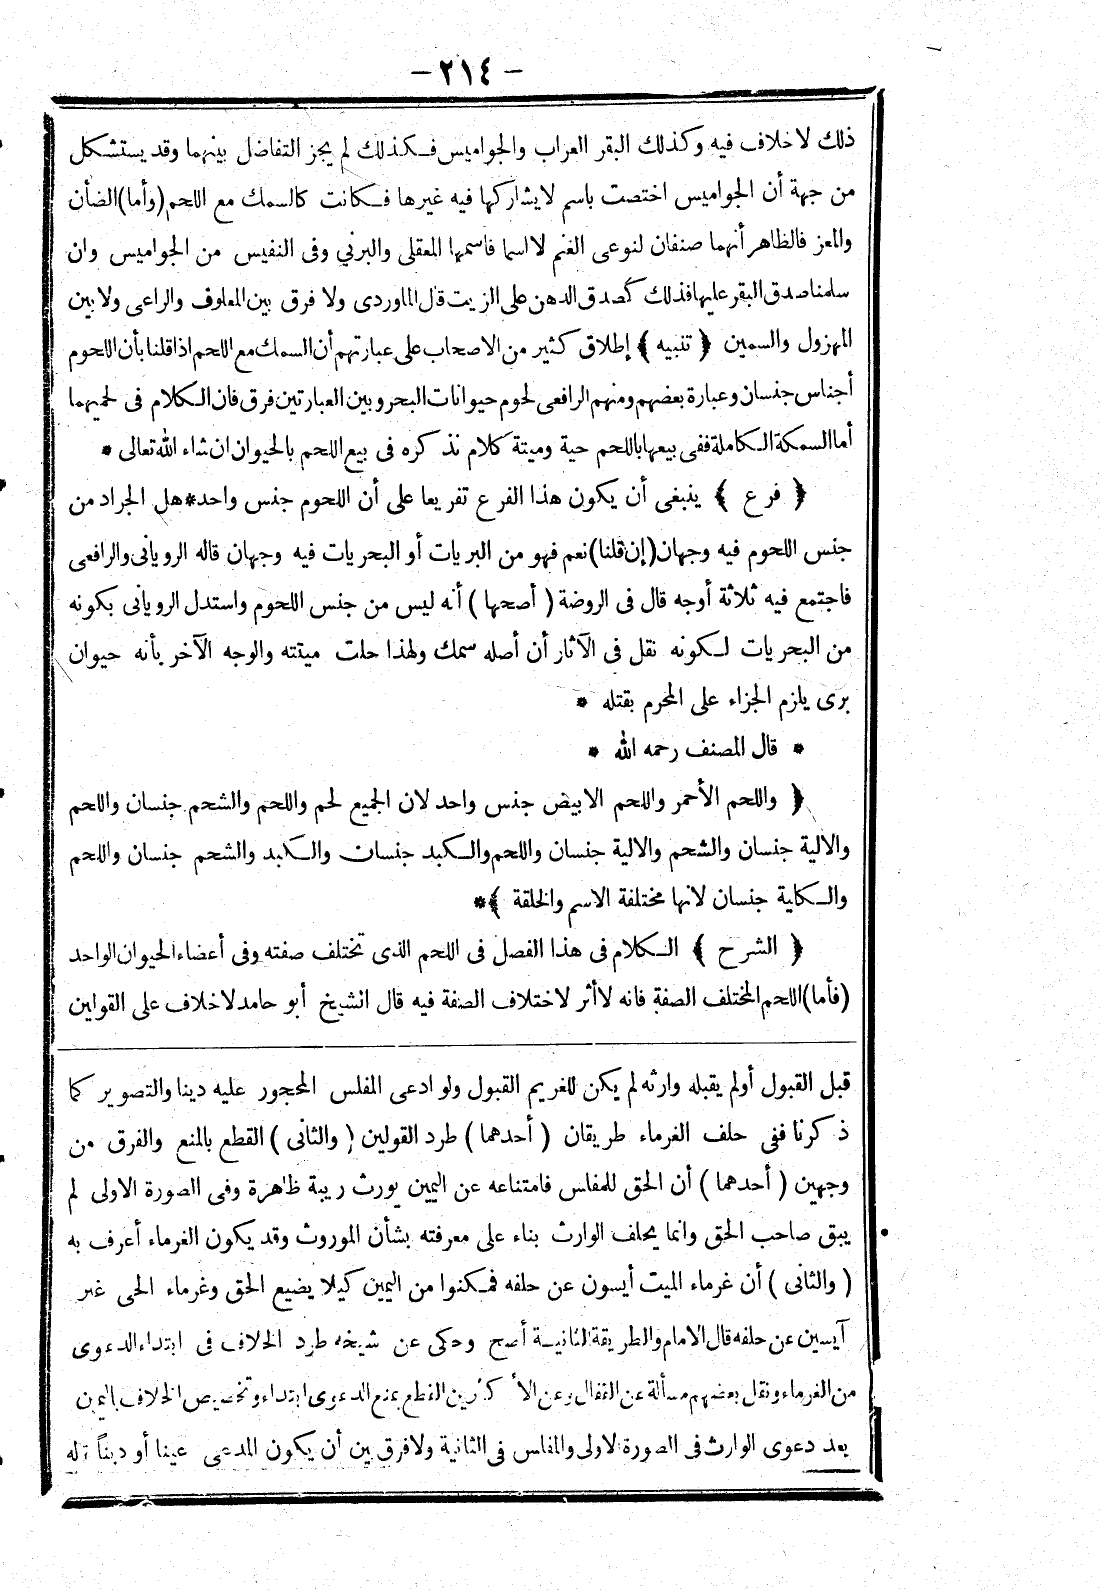 - ٢١٤ -
ذلك لاخلاف فيه وكذلك البقر العراب والجواميس فكذلك لم يجز التفاضل بينهما وقد يستشكل
من جهة أن الجواميس اختصت باسم لايشاركها فيه غيرها فكانت كالسمك مع اللحم (وأما) الضأن
والمعز فالظاهر أنهما صنفان لنوعى الغنم لا اسما فاسمها المعقلى والبرني وفى النفيس من الجواميس وان
سلمنا صدق البقر عليها فذلك كصدق الدهن على الزيت قال الماوردى ولا فرق بين المعلوف والراعى ولا بين
المهزول والسمين ﴿ تنبيه ﴾ إطلاق كثير من الاصحاب على عبارتهم أن السمك مع اللحم اذا قلنا بأن اللحوم
أجناس جنسان وعبارة بعضهم ومنهم الرافعى لحوم حيوانات البحر وبين العبارتين فرق فان الكلام فى لحميهما
أما السمكة الكاملة ففى بيعها باللحم حية وميتة كلام نذكره فى بيع اللحم بالحيوان ان شاء الله تعالى *
﴿ فرع ﴾ ينبغى أن يكون هذا الفرع تفريعا على أن اللحوم جنس واحد * هل الجراد من
جنس اللحوم فيه وجهان (إن قلنا) نعم فهو من البريات أو البحريات فيه وجهان قاله الرويانى والرافعى
فاجتمع فيه ثلاثة أوجه قال فى الروضة ( أصحها ) أنه ليس من جنس اللحوم واستدل الرويانى بكونه
من البحريات لكونه نقل فى الآثار أن أصله سمك ولهذا حلت ميتته والوجه الآخر بأنه حيوان
برى يلزم الجزاء على المحرم بقتله *
* قال المصنف رحمه الله *
﴿ واللحم الأحمر واللحم الابيض جنس واحد لان الجميع لحم واللحم والشحم جنسان واللحم
والالية جنسان والشحم والالية جنسان واللحم والكبد جنسان والكبد والشحم جنسان واللحم
والكلية جنسان لانها مختلفة الاسم والخلقة ﴾ *
﴿ الشرح ﴾ الكلام فى هذا الفصل فى اللحم الذى تختلف صفته وفى أعضاء الحيوان الواحد
(فأما) اللحم المختلف الصفة فانه لا أثر لاختلاف الصفة فيه قال الشيخ أبو حامد لا خلاف على القولين
قبل القبول أو لم يقبله وارثه لم يكن للغريم القبول ولو ادعى المفلس المحجور عليه دينا والتصوير كما
ذكرنا ففى حلف الغرماء طريقان ( أحدهما ) طرد القولين ( والثانى ) القطع بالمنع والفرق من
وجهين ( أحدهما ) أن الحق للمفلس فامتناعه عن اليمين يورث ريبة ظاهرة وفى الصورة الاولى لم
يبق صاحب الحق وانما يحلف الوارث بناء على معرفته بشأن الموروث وقد يكون الغرماء أعرف به
( والثانى ) أن غرماء الميت أيسون عن حلفه فمكنوا من اليمين كيلا يضيع الحق وغرماء الحى غير
آيسين عن حلفه قال الامام والطريقة الثانية أصح وحكى عن شيخه طرد الخلاف فى ابتداء الدعوى
من الغرماء ونقل بعضهم مسألة عن القفال وعن الأكثرين القطع بمنع الدعوى ابتداء وتخصيص الخلاف باليمين
بعد دعوى الوارث فى الصورة الاولى والمفلس فى الثانية ولا فرق بين أن يكون المدعى عينا أو دينا